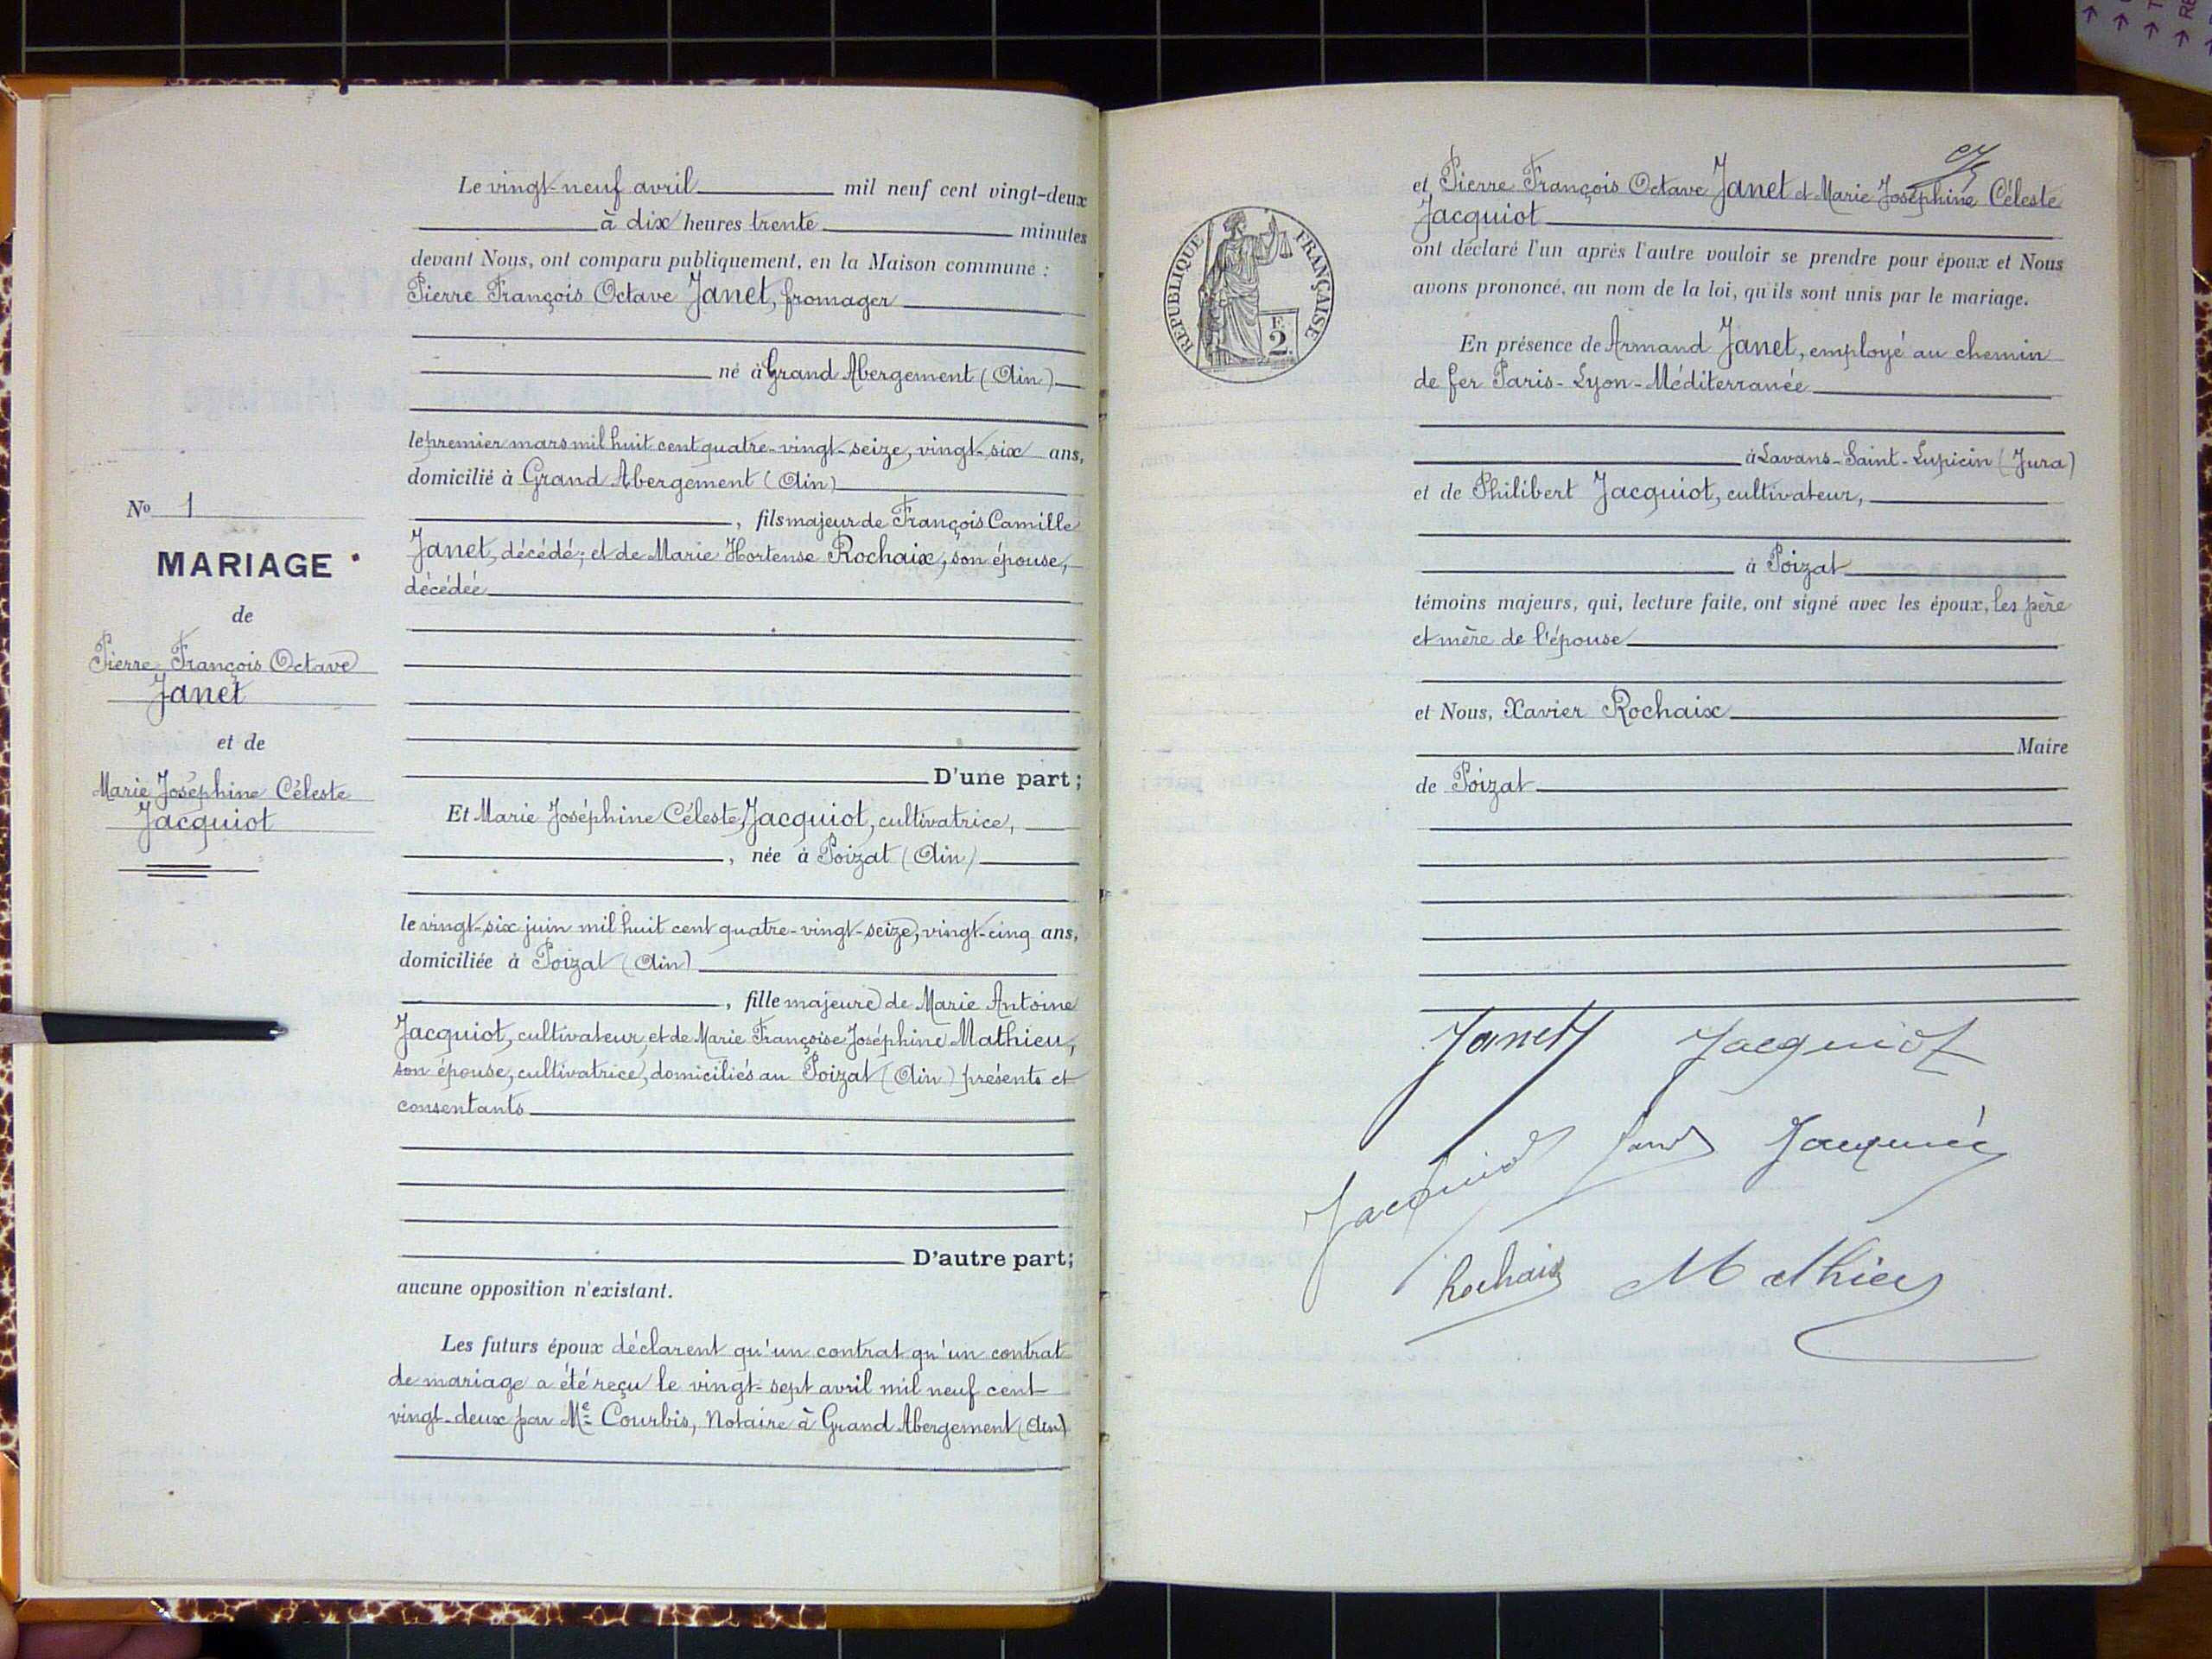 Le vingt-neuf avril mil neuf cent vingt-deux
à dix heures trente minutes
devant Nous, ont comparu publiquement, en la Maison commune :
Pierre François Octave Janet, fromager
né à Grand Abergement (Ain)
le premier mars mil huit cent quatre-vingt-seize, vingt-six ans,
domicilié à Grand Abergement (Ain)
, fils majeur de François Camille
Janet, décédé; et de Marie Hortense Rochaix, son épouse,
décédée
D'une part ;
Et Marie Joséphine Céleste Jacquiot, cultivatrice,
, née à Poizat (Ain)
le vingt-six juin mil huit cent quatre-vingt-seize, vingt-cinq ans,
domiciliée à Poizat (Ain)
, fille majeure de Marie Antoine
Jacquiot, cultivateur, et de Marie Françoise Joséphine Mathieu,
son épouse, cultivatrice, domiciliés au Poizat (Ain) présents et
consentants
D'autre part;
aucune opposition n'existant.
Les futurs époux déclarent qu'un contrat qu'un contrat
de mariage a été reçu le vingt-sept avril mil neuf cent
vingt-deux par Me Courbis, Notaire à Grand Abergement (Ain)
No 1
MARIAGE
de
Pierre François Octave
Janet
et de
Marie Joséphine Céleste
Jacquiot
et Pierre François Octave Janet et Marie Joséphine Céleste
Jacquiot
ont déclaré l'un après l'autre vouloir se prendre pour époux et Nous
avons prononcé, au nom de la loi, qu'ils sont unis par le mariage.
REPUBLIQUE FRANÇAISE
F.
2.
En présence de Armand Janet, employé au chemin
de fer Paris-Lyon-Méditerranée
à Lavans-Saint-Lupicin (Jura)
et de Philibert Jacquiot, cultivateur,
à Poizat
témoins majeurs, qui, lecture faite, ont signé avec les époux, les père
et mère de l'épouse
et Nous, Xavier Rochaix
Maire
de Poizat
Janet Jacquiot
Jacquiot Janet Jacquiot
Rochaix Mathieu